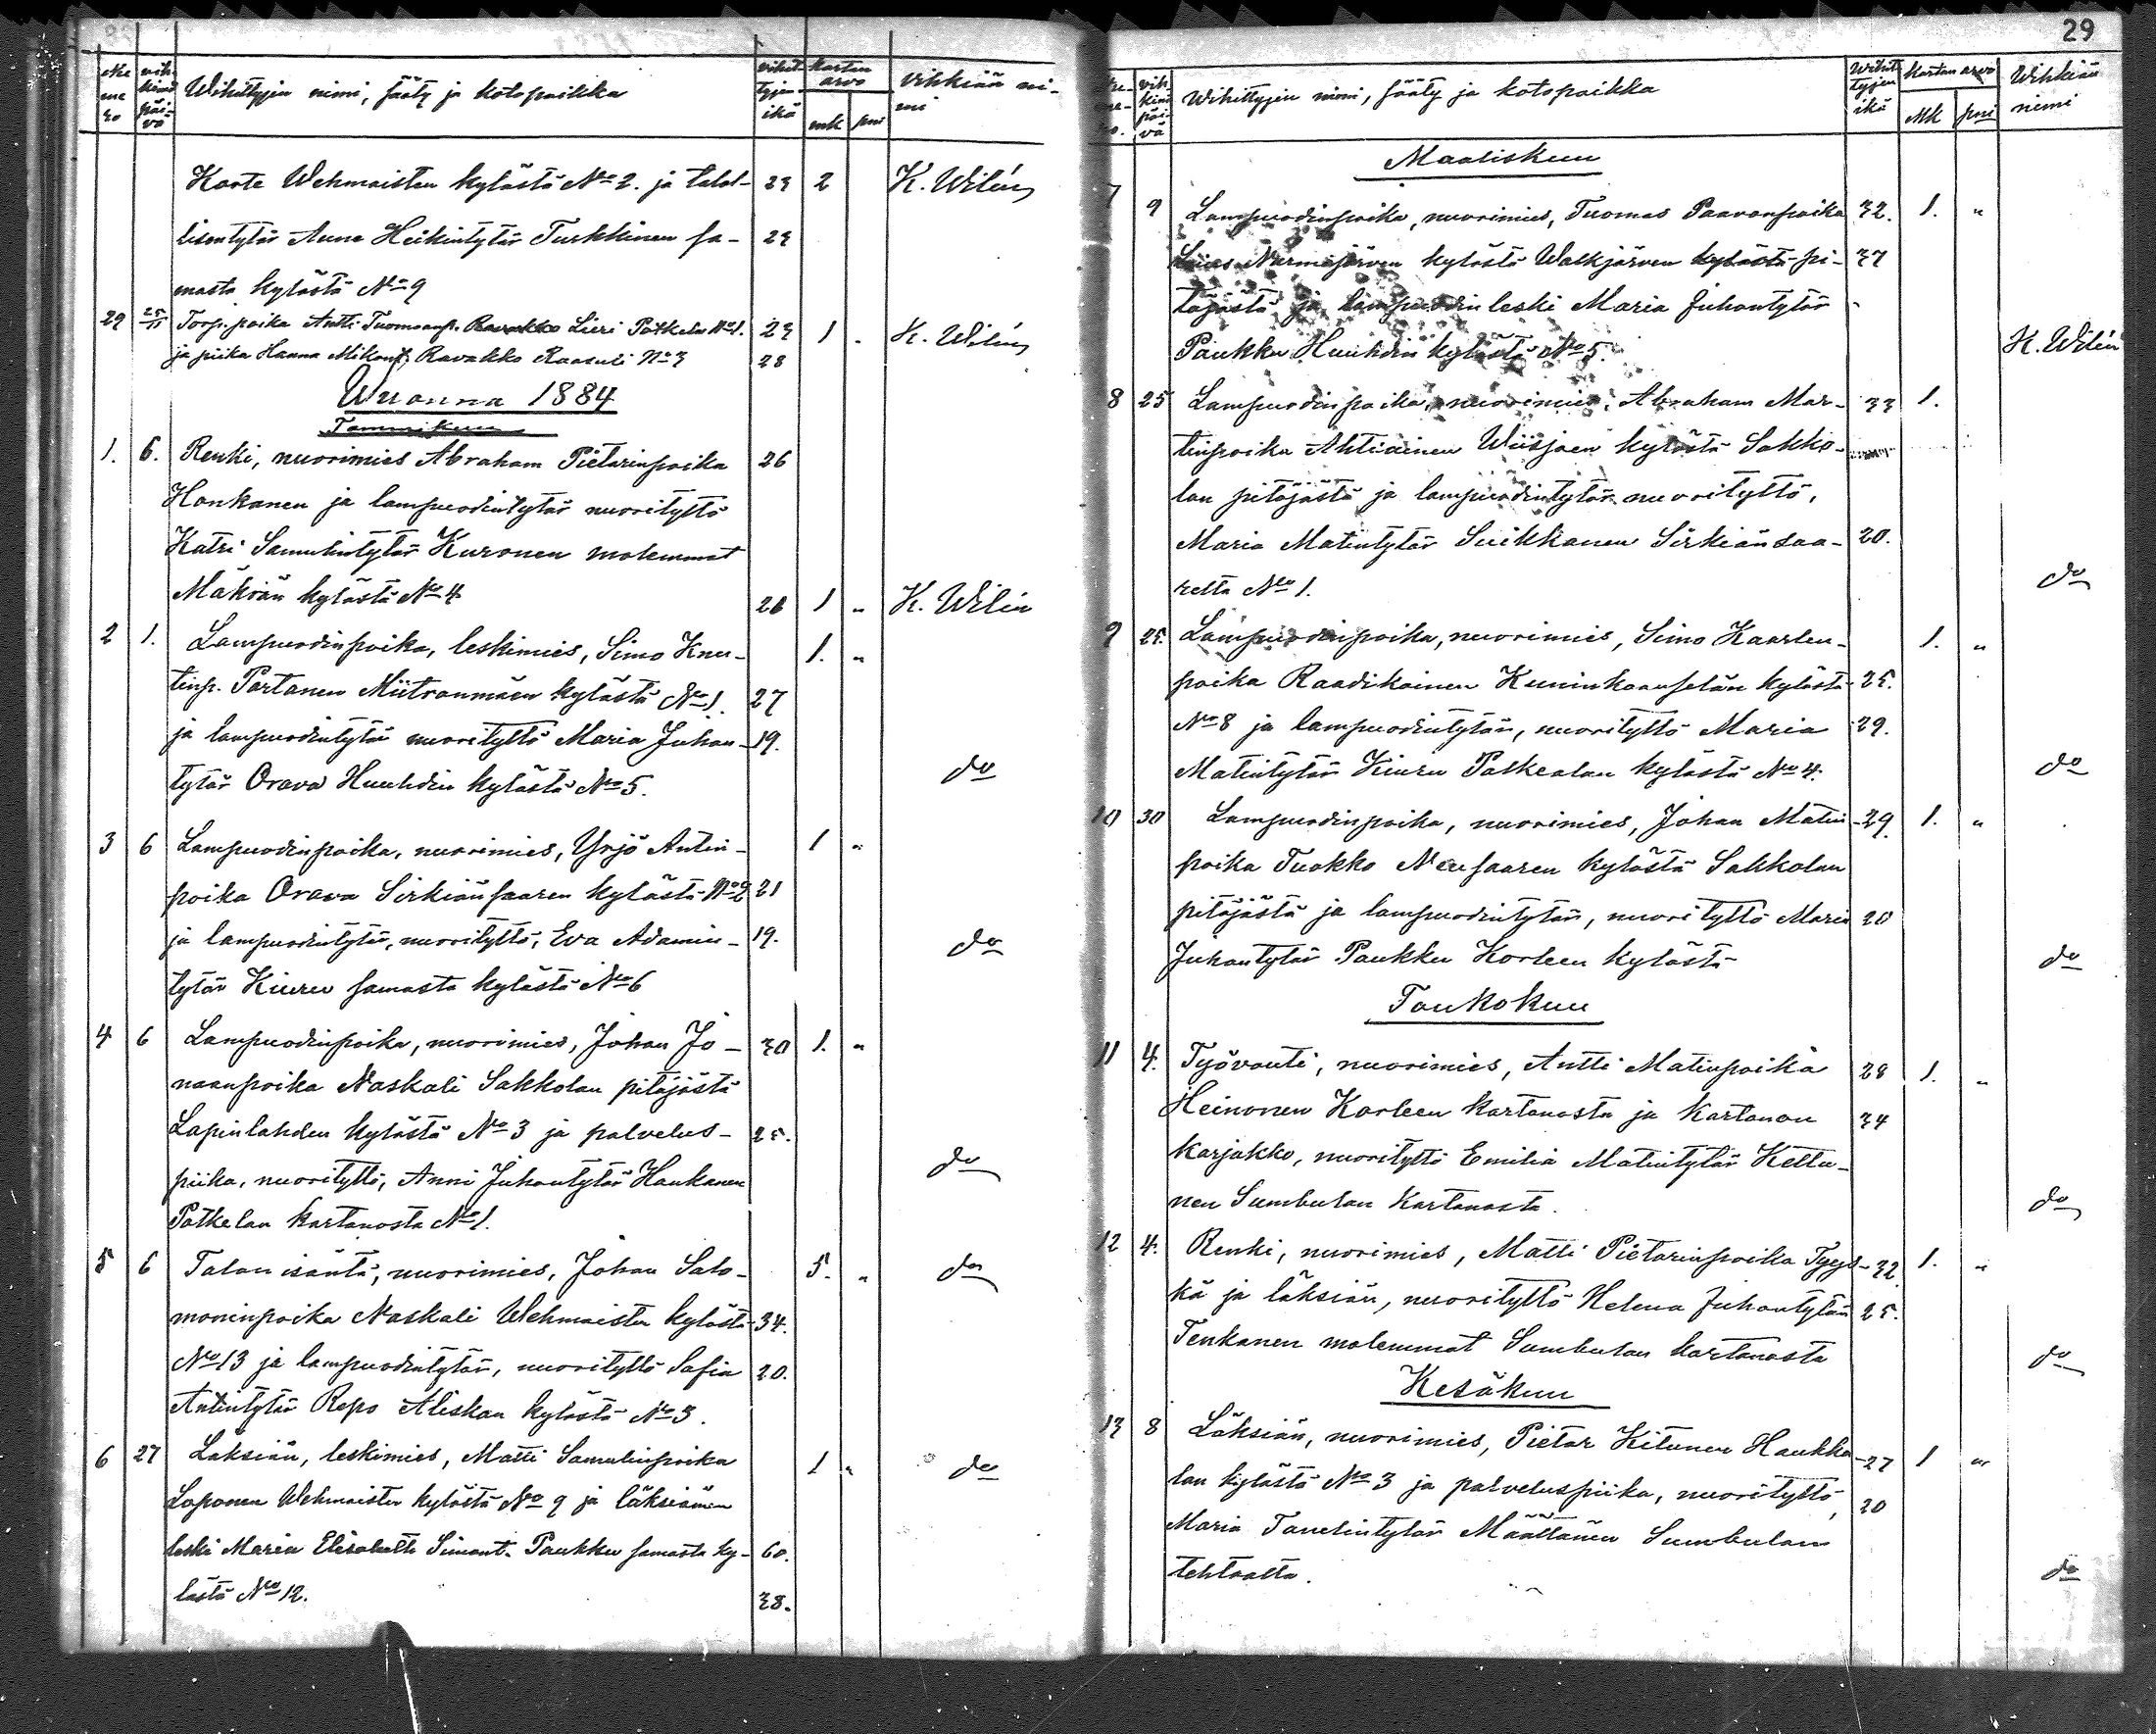 Nume
ro
vih
kimä
päi-
vä
Wihittyjen nimi, sääty ja kotopaikka
vihit-
tyjen
ikä
kartan
arvo
mk pni
vihkiän ni-
mi
Korte Wehmaisten kylästä No 2. ja talol- 23 2 K. Wilén
lisentytär Anna Heikintytär Turkkinen sa- 23
masta kylästä No 9
29 25/11 Torp. poika Antti Tuomaanp. Ravakko Lieri Potkela No 1. 23 1 " K. Wilén
ja piika Hanna Mikont. Ravakko Raasuli No 3 28
Wuonna 1884
Tammikuu
1. 6. Renki, nuorimies Abraham Pietarinpoika 26
Honkanen ja lampuodintytär nuorityttö
Katri Samulintytär Kuronen molemmat
Mäkrän kylästä No 4 26 1 " K. Wilén
2 1. Lampuodinpoika, leskimies, Simo Knu- 1. "
tinp. Partanen Miitronmäen kylästä No 1. 27
ja lampuodintytär nuorityttö Maria Juhan- 19.
tytär Orava Huuhdin kylästä No 5. do
3 6 Lampuodinpoika, nuorimies, Yrjö Antin- 1 "
poika Orava Sirkiänsaaren kylästä No 2 21
ja lampuodintytär, nuorityttö, Eva Adamin- 19. do
tytär Kiuru samasta kylästä No 6
4 6 Lampuodinpoika, nuorimies, Johan Jo- 30 1. "
naanpoika Naskali Sakkolan pitäjästä
Lapinlahden kylästä No 3 ja palvelus- 25.
piika, nuorityttö, Anni Juhontytär Hankanen do
Potkelan kartanosta No 1.
5 6 Talon isäntä, nuorimies, Johan Salo- 5. " do
moninpoika Naskali Wehmaisten kylästä 34.
No 13 ja lampuodintytär, nuorityttö Safia 20.
Antintytär Repo Aliskan kylästä No 3.
6 27 Läksiän, leskimies, Matti Samulinpoika 1 " do
Loponen Wehmaisten kylästä No 9 ja läksiämen
leski Maria Elisabetti Simont. Paukku samasta ky- 60.
lästä No 12. 38.
29
Nu-
me-
ro.
vih
kimä
päi-
vä
Wihittyjen nimi, sääty ja kotopaikka
Wihit
tyjen
ikä
kartan arvo
Mk pni
Wihkiän
nimi
Maaliskuu
7 9 Lampuodinpoika, nuorimies, Tuomas Paavonpoika 32. 1. "
Nurmijärven kylästä Walkjärven kylästä pi- 37
täjästä ja lampuodin leski Maria Juhontytär
Paukku Huuhdin kylästä No 5. K. Wilén
8 25 Lampuodinpoika, nuorimies, Abraham Mar- 33 1.
tinpoika Ahtiainen Wiisjoen kylästä Sakko-
lan pitäjästä ja lampuodintytär nuorityttö,
Maria Matintytär Suikkanen Sirkiänsaa- 20.
relta No 1. do
9 25. Lampuodinpoika, nuorimies, Simo Kaarlen- 1. "
poika Raadikainen Kuninkaanselän kylästä 25.
No 8 ja lampuodintytär, nuorityttö Maria 29.
Matintytär Kiuru Palkealan kylästä No 4. do
10 30 Lampuodinpoika, nuorimies, Johan Matin- 29. 1. "
poika Tuokko Neusaaren kylästä Sakkolan
pitäjästä ja lampuodintytär, nuorityttö Maria 20
Juhontytär Paukku Korleen kylästä do
Toukokuu
11 4. Työvouti, nuorimies, Antti Matinpoika 28 1. "
Heinonen Korleen kartanosta ja Kartanon 34
karjakko, nuorityttö Emilia Matintytär Kettu-
nen Sumbulan Kartanosta. do
12 4. Renki, nuorimies, Matti Pietarinpoika Tyys- 32. 1. "
kä ja läksiän, nuorityttö Helena Juhontytär 25.
Tenkanen molemmat Sumbulan kartanosta do
Kesäkuu
13 8 Läksiän, nuorimies, Pietar Kitunen Haukka- 27 1 "
lan kylästä No 3 ja palveluspiika, nuorityttö, 20
Maria Tanelintytär Määttänen Sumbulan
tehtaalta. do